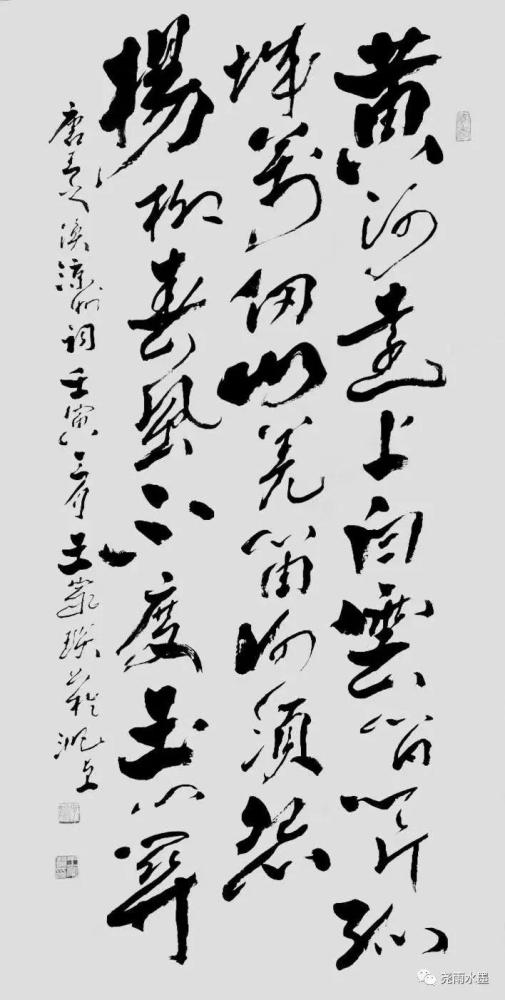 黄河遠上白雲間一片孤
城萬仞山羌笛何須怨
楊柳春風不度玉門關
唐王之渙涼州詞壬寅
尧雨水墨